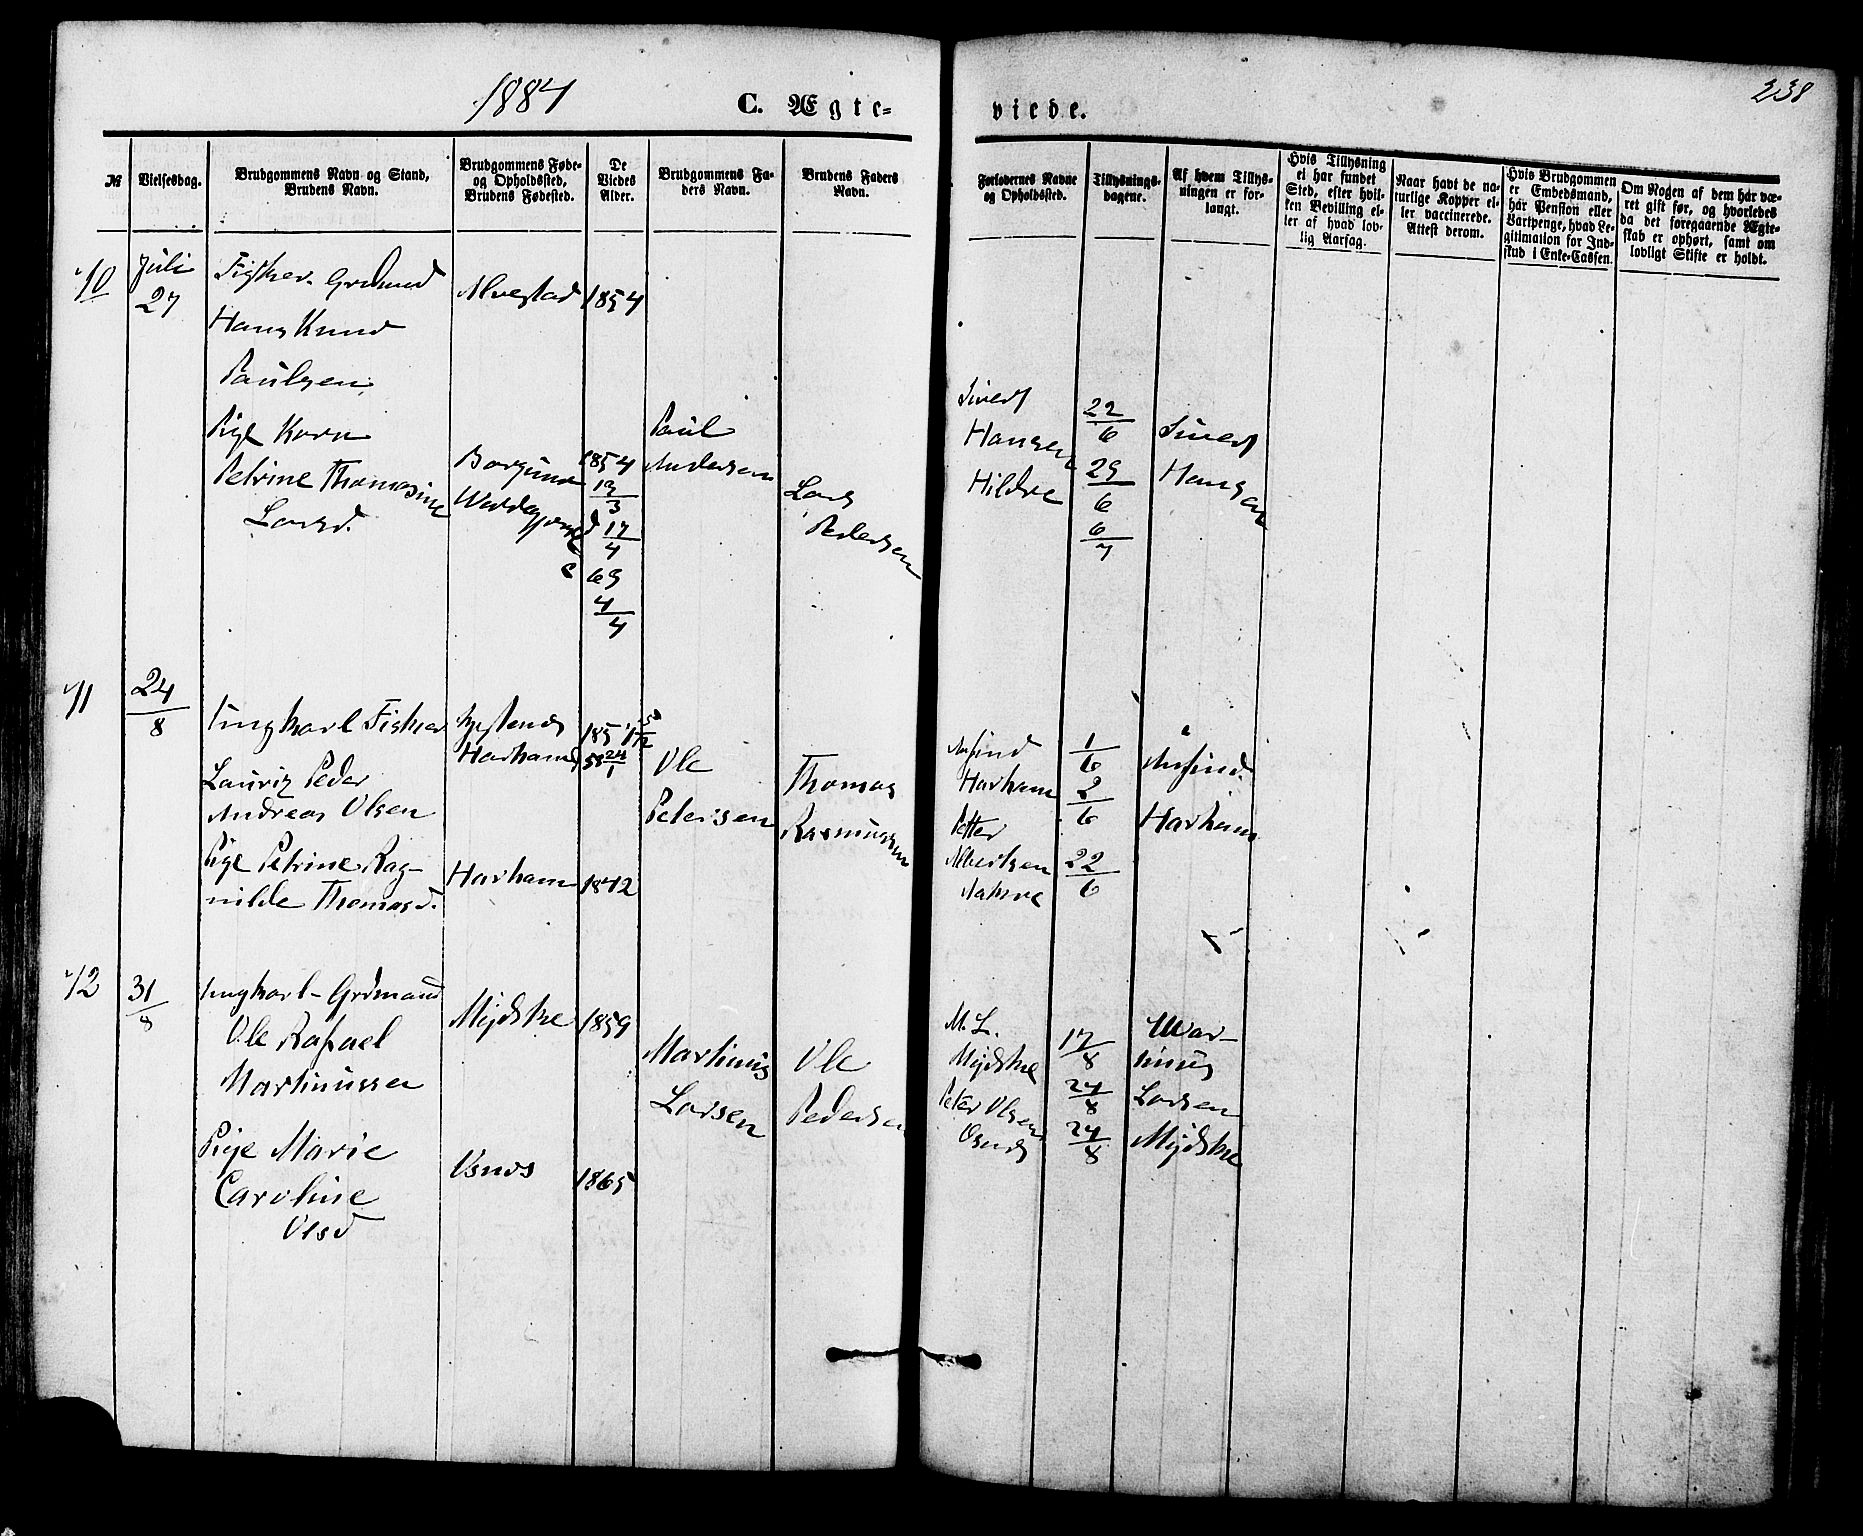 1884
C. Ægte-
viede.
238
№
Vielsesdag.
Brudgommens Navn og Stand,
Brudens Navn.
Brudgommens Føde-
og Opholdssted,
Brudens Fødested.
De
Viedes
Alder.
Brudgommens Fa-
ders Navn.
Brudens Faders
Navn.
Forlovernes Navne
og Opholdssted.
Tillysnings-
dagene.
Af hvem Tillys-
ningen er for-
langt.
Hvis Tillysning
ei har fundet
Sted, efter hvil-
ken Bevilling el-
ler af hvad lov-
lig Aarsag.
Naar havt de na-
turlige Kopper el-
ler vaccinerede.
Attest derom.
Hvis Brudgommen
er Embedsmand,
har Pension eller
Vartpenge, hvad Le-
gitimation for Ind-
skud i Enke-Cassen.
Om Nogen af dem har væ-
ret gift før, og hvorledes
da det foregaaende Ægte-
skab er ophørt, samt om
lovligt Skifte er holdt.
10
Juli
27
Fisker.
Hans Knud
Paulsen
Alvestad
1854
Pige Karn
Petrine Thomasine
Larsd.
Borgund
1854
19/3
d 17/4
c 69
4/4
Paul
Andersen
Lars
Pedersen
Sivert
Hansen
Hildre
22/6
29/6
6/7
Sivert
Hansen
11
24/8
Ungkarl Fisker
Lauriz Peder
Andreas Olsen
Harhams
1857
58 24/1
Pige Petrine Rag-
nilde Thomasd.
Harham
1842
Ole
Petersen
Thomas
Rasmussen
Anfind
Harham
Petter
Albertsen
1/6
2/6
22/6
Anfind
Harham
12
31/8
Ungkarl-
Ole Rafael
Martinussen
Mijdske
1859
Pige Marie
Caroline
Olsd
Usnds
1865
Martinus
Larsen
Ole
Pedersen
M. L.
Mijdske
Peter Olsen
Osnds
17/8
24/8
24/8
Mar-
tinus
Larsen
Mijdske